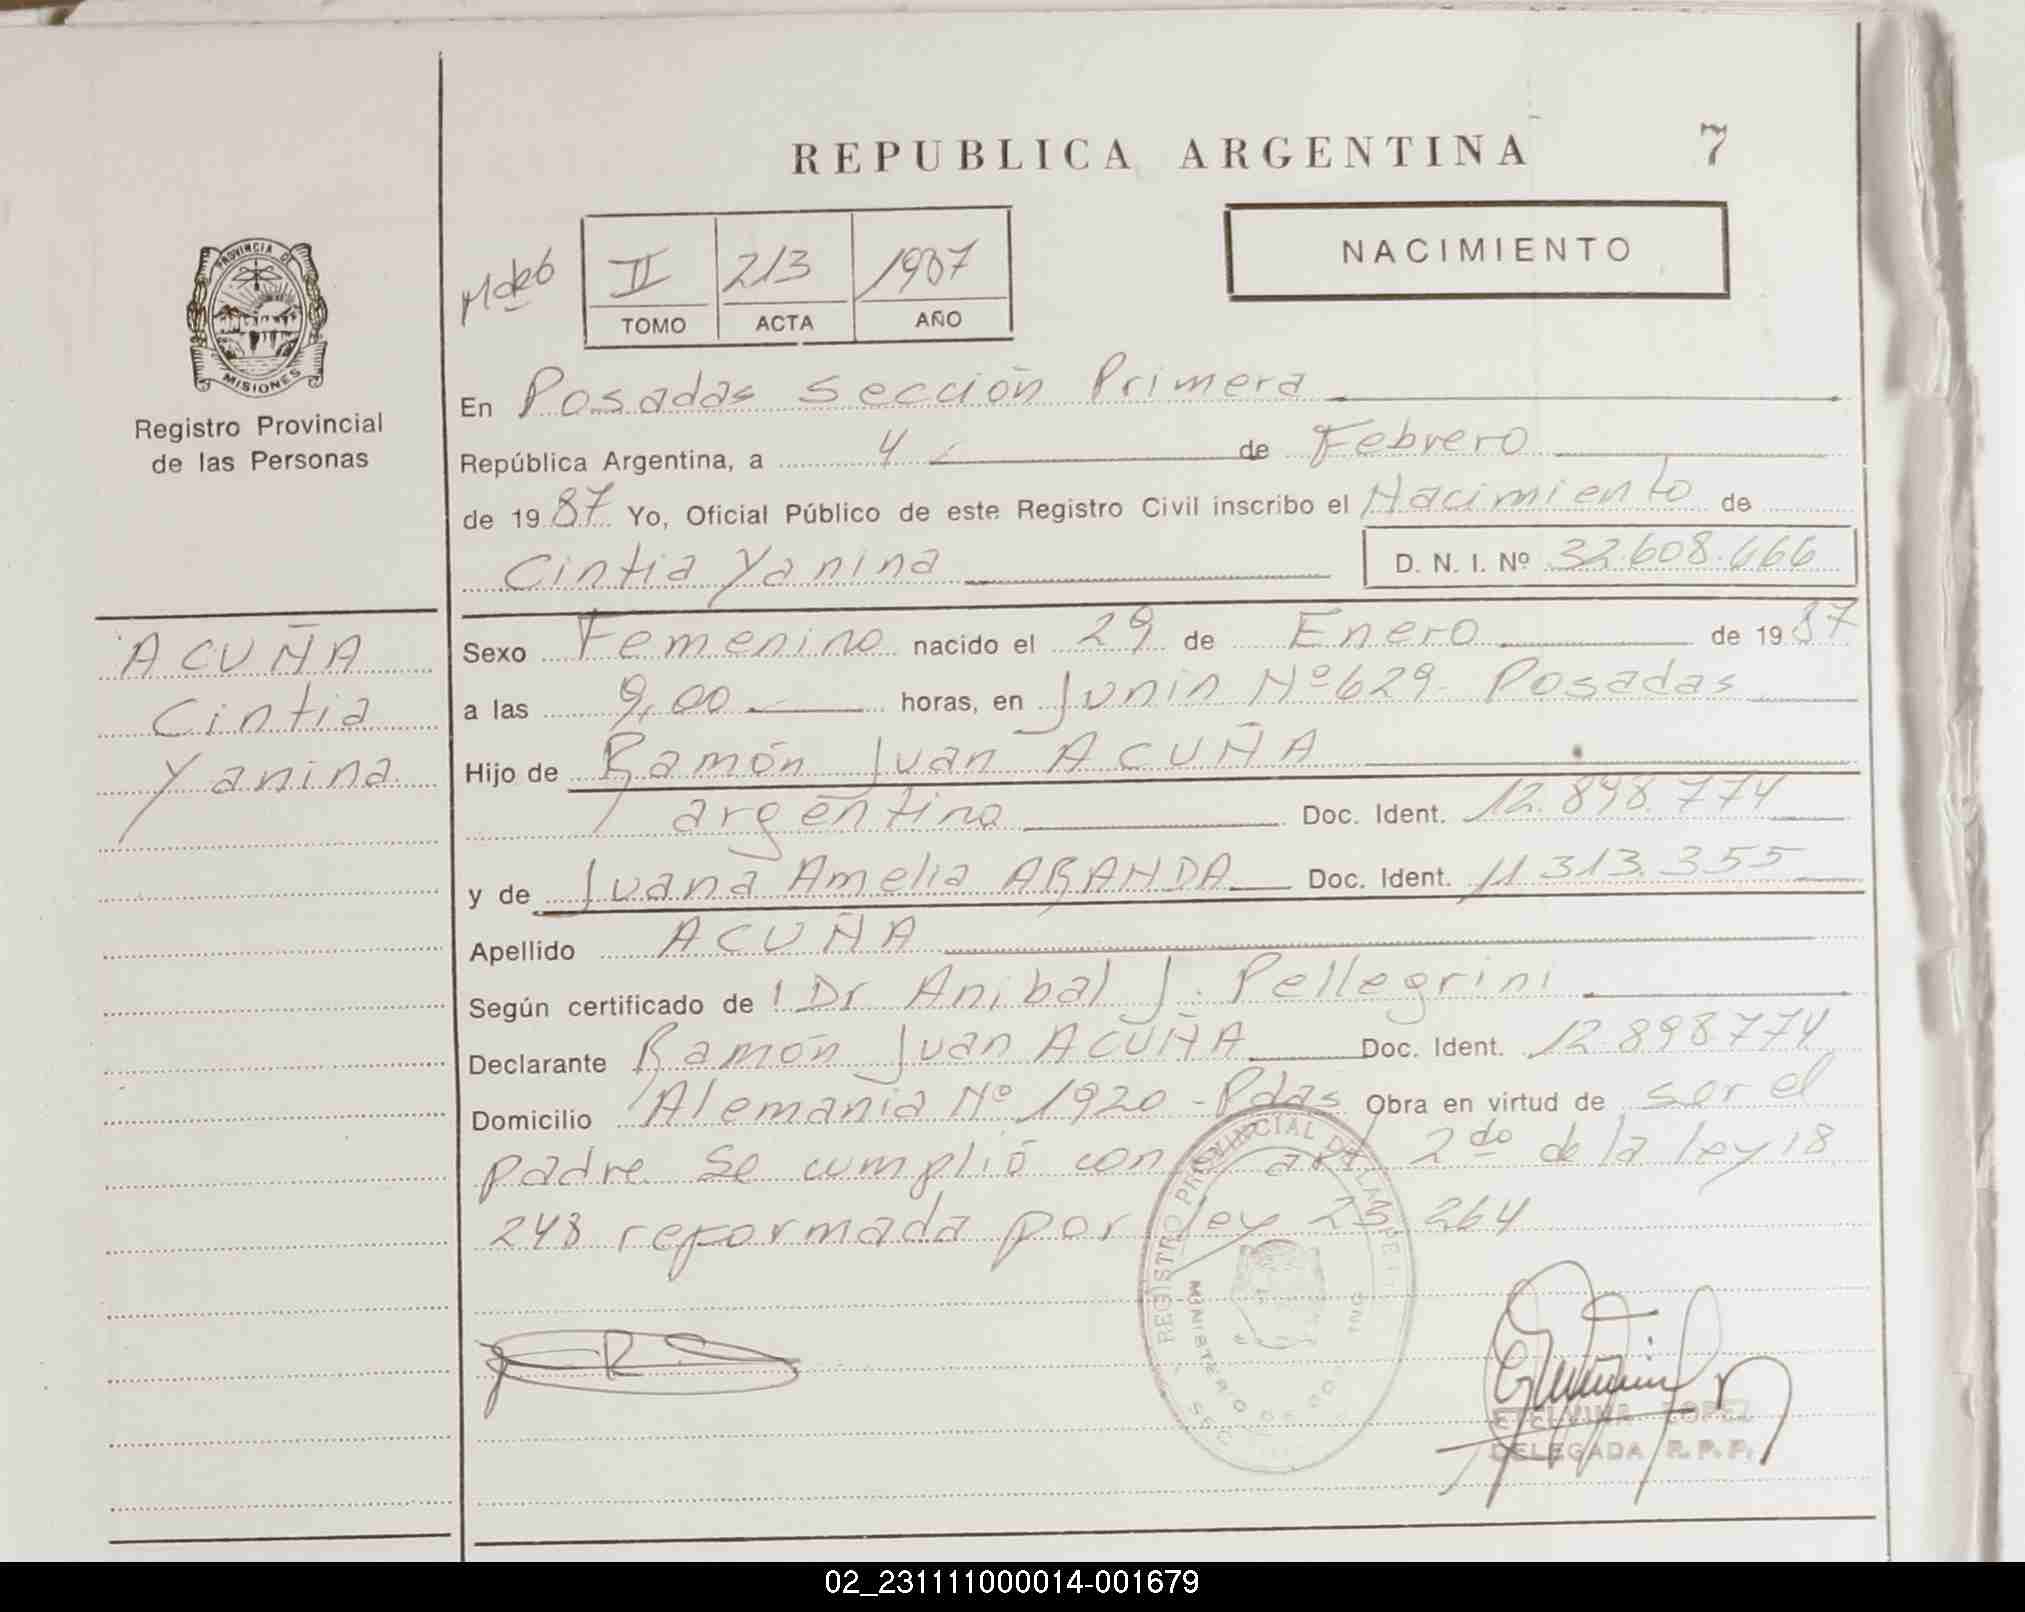 REPUBLICA ARGENTINA 7
PROVINCIA DE MISIONES
Registro Provincial
de las Personas
II 213 1987
TOMO ACTA AÑO
NACIMIENTO
En Posadas Sección Primera
República Argentina, a 4 de Febrero
de 1987 Yo, Oficial Público de este Registro Civil inscribo el Nacimiento de
Cintia Yanina D. N. I. Nº 32.608.666
ACUÑA
Cintia
Yanina
Sexo Femenino nacido el 29 de Enero de 1987
a las 9,00 horas, en Junin Nº 629- Posadas
Hijo de Ramón Juan ACUÑA
argentino Doc. Ident. 12.898.774
y de Juana Amelia ARANDA Doc. Ident. 11.313.355
Apellido ACUÑA
Según certificado de Dr Anibal J. Pellegrini
Declarante Ramón Juan ACUÑA Doc. Ident. 12.898774
Domicilio Alemania Nº 1920 - Pdas Obra en virtud de ser el
padre. Se cumplió con art 2do de la ley 18
248 reformada por ley 23.264
REGISTRO PROVINCIAL DE LAS PE
MINISTERIO DE GO
ELVINA LOPEZ
DELEGADA R.P.P.
02_231111000014-001679